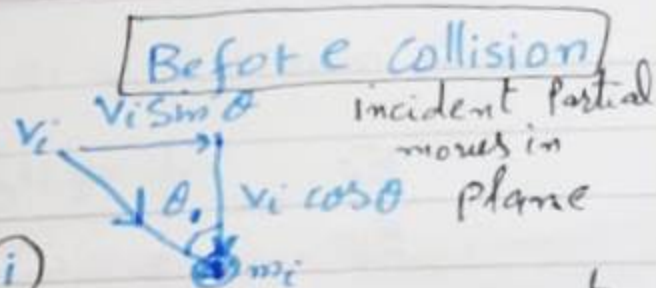 Before collision
Vi Sin θ
incident Partial
moves in
plane
Vi
θ.
Vi cosθ
mi
i)